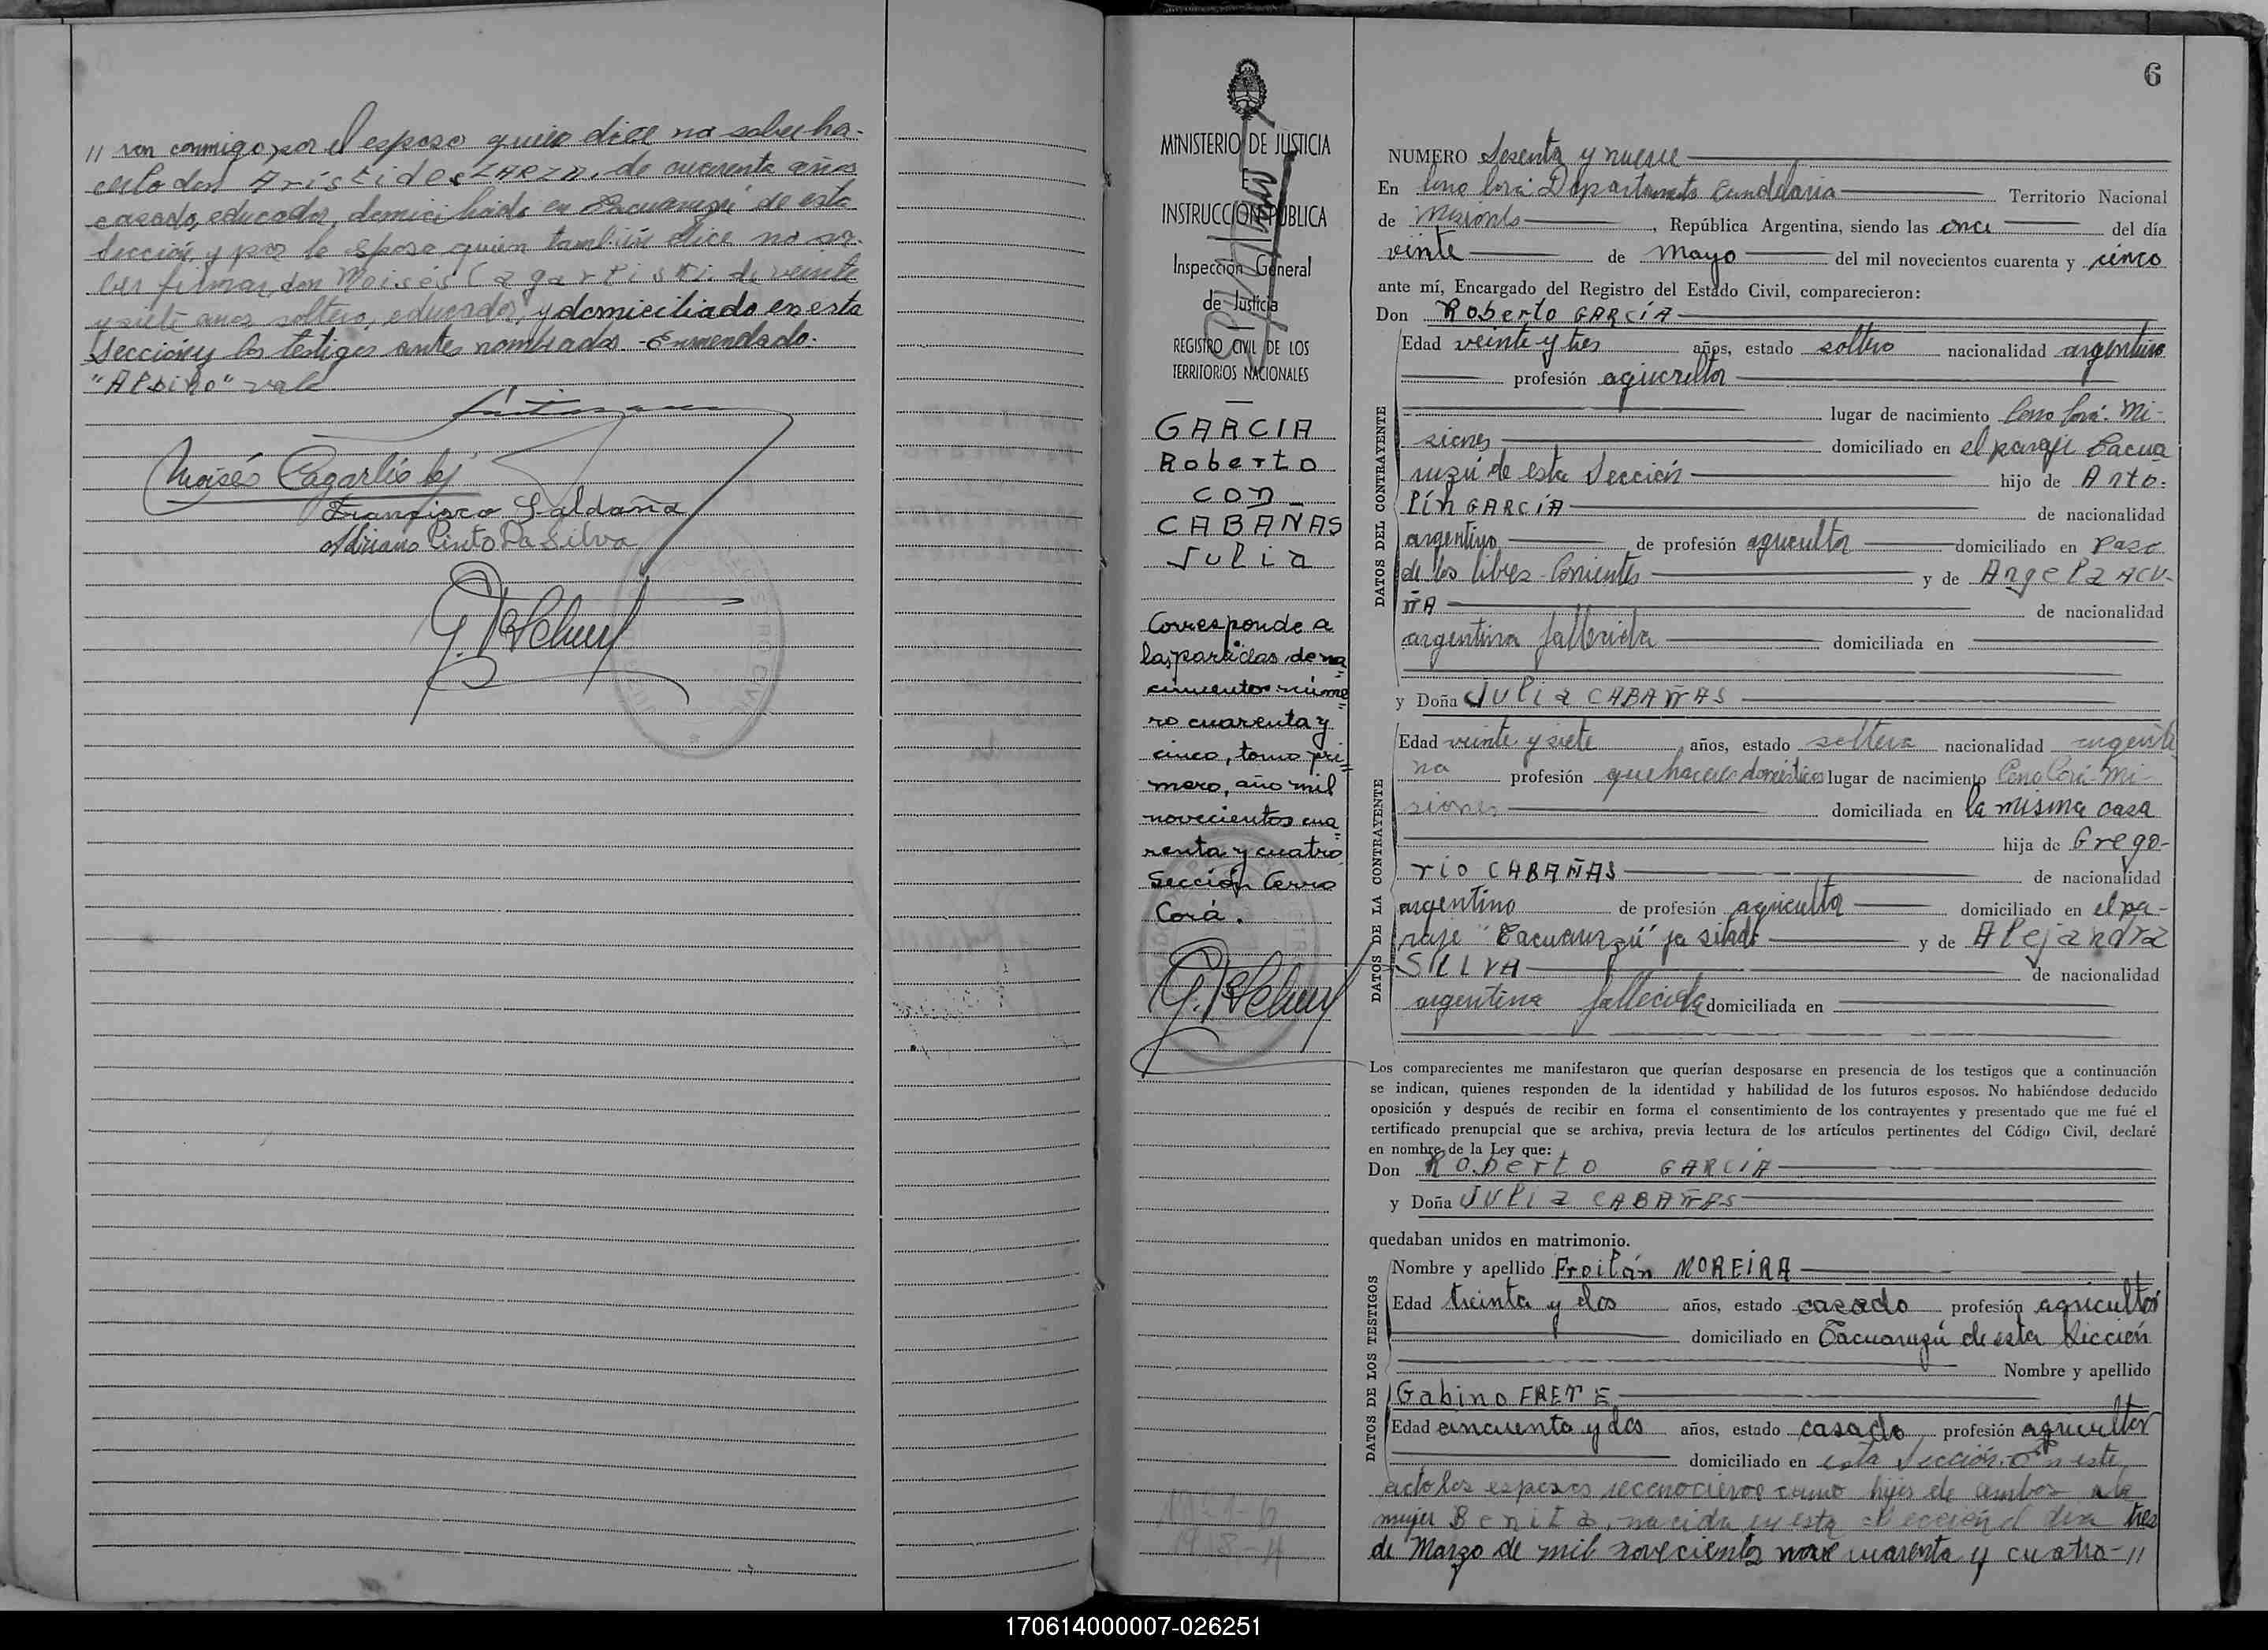 // ren conmigo, por el esposo quien dice no saber ha-
cerlo don Arístides ZARZA, de cuarenta años
casado, educado, domiciliado en Tacuaruzú de esta
Sección, y por la esposa quien también dice no sa-
ber firmar, don Moisés Cagartisti de veinte
y siete años soltero, educado, y domiciliado en esta
Sección y los testigos antes nombrados - Enmendado.
"Albino" vale
Moisés
Francisco Saldaña
Adriano Pinto Da Silva
6
MINISTERIO DE JUSTICIA
INSTRUCCION PUBLICA
Inspección General
de Justicia
REGISTRO CIVIL DE LOS
TERRITORIOS NACIONALES
GARCIA
Roberto
con
CABAÑAS
Julia
Corresponde a
las partidas de na=
cimientos núme=
ro cuarenta y
cinco, tomo pri=
mero, año mil
novecientos cua=
renta y cuatro
Sección Cerro
Corá.
NUMERO Sesenta y nueve
En Cerro Corá Departamento Candelaria Territorio Nacional
de Misiones, República Argentina, siendo las once del día
veinte de Mayo del mil novecientos cuarenta y cinco
ante mí, Encargado del Registro del Estado Civil, comparecieron:
Don Roberto GARCÍA
DATOS DEL CONTRAYENTE
Edad veinte y tres años, estado soltero nacionalidad argentino
profesión agricultor
lugar de nacimiento Cerro Corá. Mi-
siones domiciliado en el paraje Tacua
ruzú de esta Sección hijo de Anto-
lín GARCÍA de nacionalidad
argentino de profesión agricultor domiciliado en Paso
de los Libres - Corrientes y de Angela ACU-
ÑA de nacionalidad
argentina fallecida domiciliada en
y Doña Julia CABAÑAS
DATOS DE LA CONTRAYENTE
Edad veinte y siete años, estado soltera nacionalidad argenti
na profesión quehaceres domésticos lugar de nacimiento Cerro Corá - Mi-
siones domiciliada en la misma casa
hija de Grego-
rio CABAÑAS de nacionalidad
argentino de profesión agricultor domiciliado en el pa-
raje "Tacuaruzú" ya citado y de Alejandra
SILLVA de nacionalidad
argentina fallecida domiciliada en
Los comparecientes me manifestaron que querían desposarse en presencia de los testigos que a continuación
se indican, quienes responden de la identidad y habilidad de los futuros esposos. No habiéndose deducido
oposición y después de recibir en forma el consentimiento de los contrayentes y presentado que me fué el
certificado prenupcial que se archiva, previa lectura de los artículos pertinentes del Código Civil, declaré
en nombre de la Ley que:
Don Roberto GARCÍA
y Doña Julia CABAÑAS
quedaban unidos en matrimonio.
DATOS DE LOS TESTIGOS
Nombre y apellido Froilán MOREÍRA
Edad treinta y dos años, estado casado profesión agricultor
domiciliado en Tacuaruzú de esta Sección
Nombre y apellido
Gabino FRETE
Edad cincuenta y dos años, estado casado profesión agricultor
domiciliado en esta Sección. En este
acto los esposos reconocieron como hijos de ambos a la
mujer Benita, nacida en esta Sección el día tres
de Marzo de mil novecientos nove cuarenta y cuatro - //
170614000007-026251